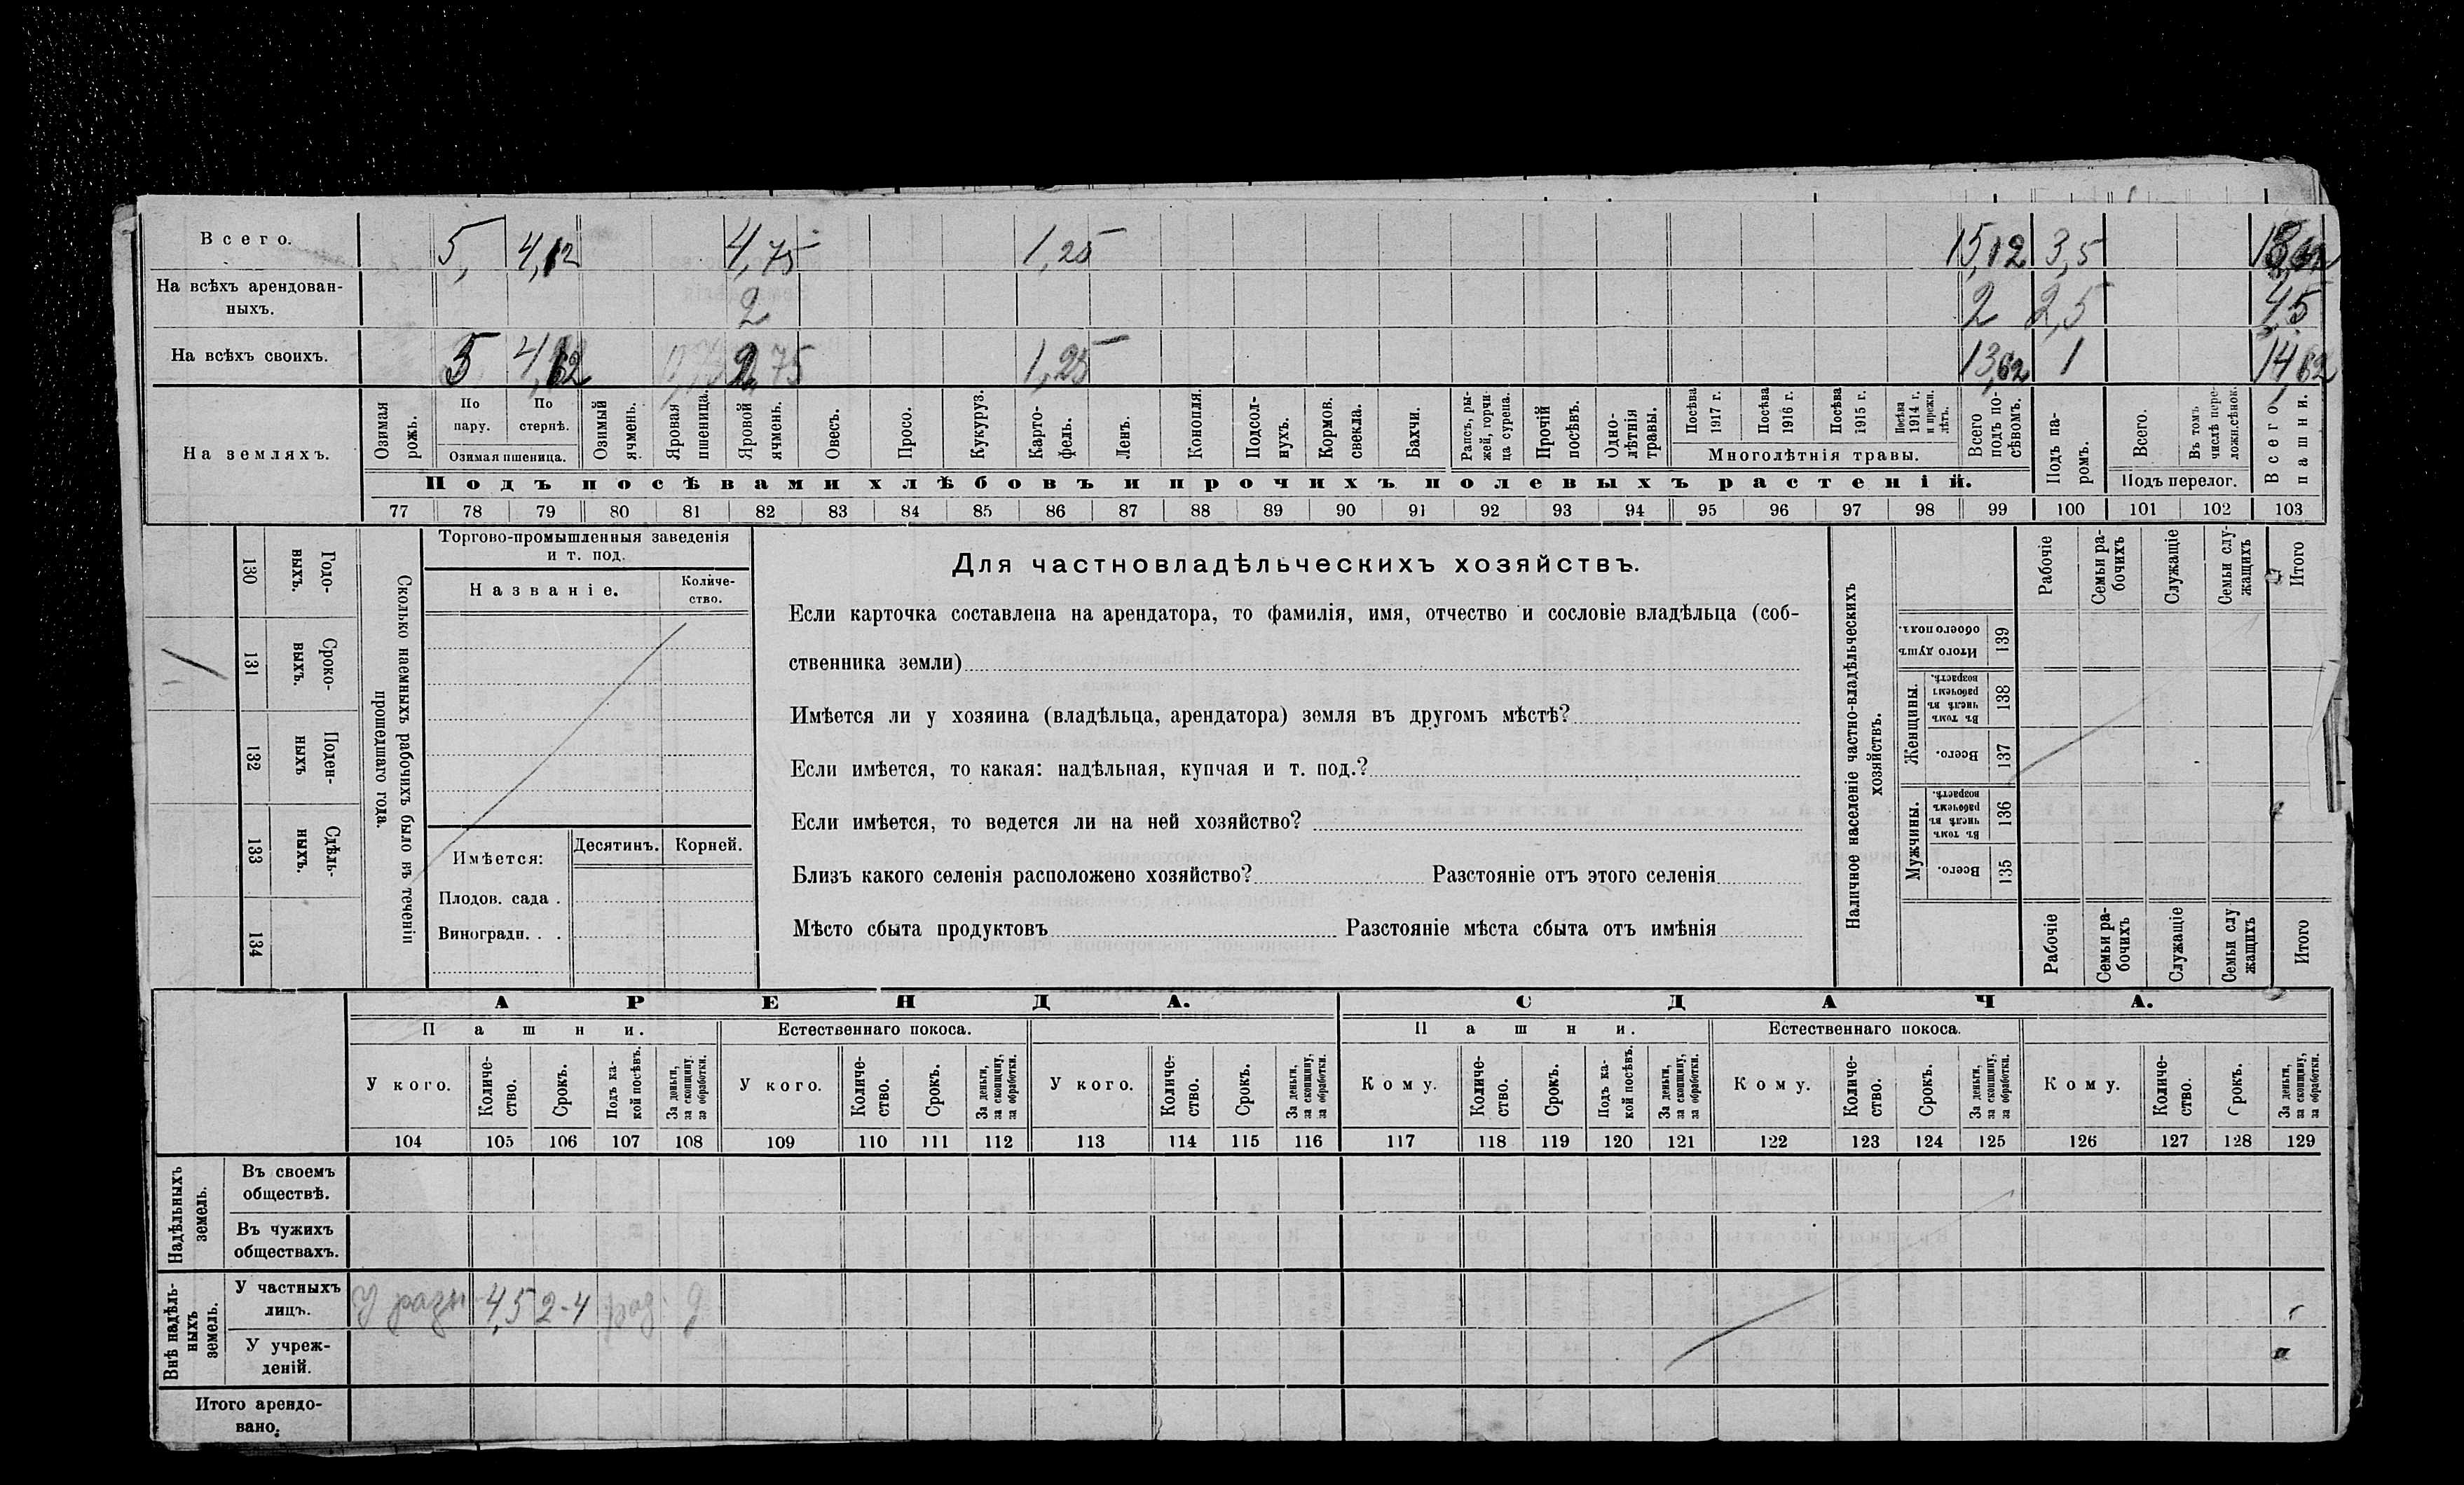 Всего. 5, 4,12 4,75 1,25 15,12 3,5
На всѣхъ арендован-
ныхъ. 2 2 2,5 4,5
На всѣхъ своихъ. 5 1,25 13,62 1 14,62
На земляхъ.
Озимая рожь.
По пару.
По стернѣ.
Озимая пшеница.
Озимый ячмень.
Яровая пшеница.
Яровой ячмень.
Овесъ.
Просо.
Кукуруз.
Карто-
фель.
Ленъ.
Конопля.
Подсол-
нухъ.
Кормов. свекла.
Бахчи.
Рапсъ, ры-
жей, горчи-
ца сурепа.
Прочій посѣвъ.
Одно-
лѣтнія травы.
Посѣва 1917 г.
Посѣва 1916 г.
Посѣва 1915 г.
Посѣва 1914 г. и прежн. лѣтъ.
Многолѣтнія травы.
Всего подъ по-
сѣвомъ.
Подъ па-
ромъ.
Всего.
Въ томъ числѣ пере-
ложн. сѣнок.
Подъ перелог.
Всего пашни.
Подъ посѣвами хлѣбовъ и прочихъ полевыхъ растеній.
77 78 79 80 81 82 83 84 85 86 87 88 89 90 91 92 93 94 95 96 97 98 99 100 101 102 103
130 Годо-
выхъ.
131 Сроко-
выхъ.
132 Поден-
ныхъ
133 Сдѣль-
ныхъ.
134
Сколько наемныхъ рабочихъ было въ теченіи
прошедшаго года.
Торгово-промышленныя заведенія
и т. под.
Названіе. Количе-
ство.
Имѣется: Десятинъ. Корней.
Плодов. сада .
Виноградн. . .
Для частновладѣльческихъ хозяйствъ.
Если карточка составлена на арендатора, то фамилія, имя, отчество и сословіе владѣльца (соб-
ственника земли)
Имѣется ли у хозяина (владѣльца, арендатора) земля въ другомъ мѣстѣ?
Если имѣется, то какая: надѣльная, купчая и т. под.?
Если имѣется, то ведется ли на ней хозяйство?
Близъ какого селенія расположено хозяйство? Разстояніе отъ этого селенія
Мѣсто сбыта продуктовъ Разстояніе мѣста сбыта отъ имѣнія
Наличное населеніе частно-владѣльческихъ
хозяйствъ.
Рабочіе
Семьи ра-
бочихъ
Служащіе
Семьи слу-
жащихъ
Итого
Итого душъ обоего пола. 139
Женщины.
Въ томъ числѣ въ рабочемъ возрастѣ. 138
Всего. 137
Мужчины.
Въ томъ числѣ въ рабочемъ возрастѣ. 136
Всего. 135
Рабочіе
Семьи ра-
бочихъ
Служащіе
Семьи слу
жащихъ
Итого
АРЕНДА. СДАЧА.
Пашни. Естественнаго покоса. Пашни. Естественнаго покоса.
У кого.
Количе-
ство.
Срокъ.
Подъ ка-
кой посѣвъ.
За деньги, за скопщину, за обработки.
У кого.
Количе-
ство.
Срокъ.
За деньги, за скопщину, за обработки.
У кого.
Количе-
ство.
Срокъ.
За деньги, за скопщину, за обработки.
Кому.
Количе-
ство.
Срокъ.
Подъ ка-
кой посѣвъ.
За деньги, за скопщину, за обработки.
Кому.
Количе-
ство.
Срокъ.
За деньги, за скопщину, за обработки.
Кому.
Количе-
ство.
Срокъ.
За деньги, за скопщину, за обработки.
104 105 106 107 108 109 110 111 112 113 114 115 116 117 118 119 120 121 122 123 124 125 126 127 128 129
Надѣльныхъ земель.
Въ своемъ
обществѣ.
Въ чужихъ
обществахъ.
Внѣ надѣль-
ныхъ земель.
У частныхъ
лицъ. У разн 4,5 2-4
У учреж-
деній.
Итого арендо-
вано.